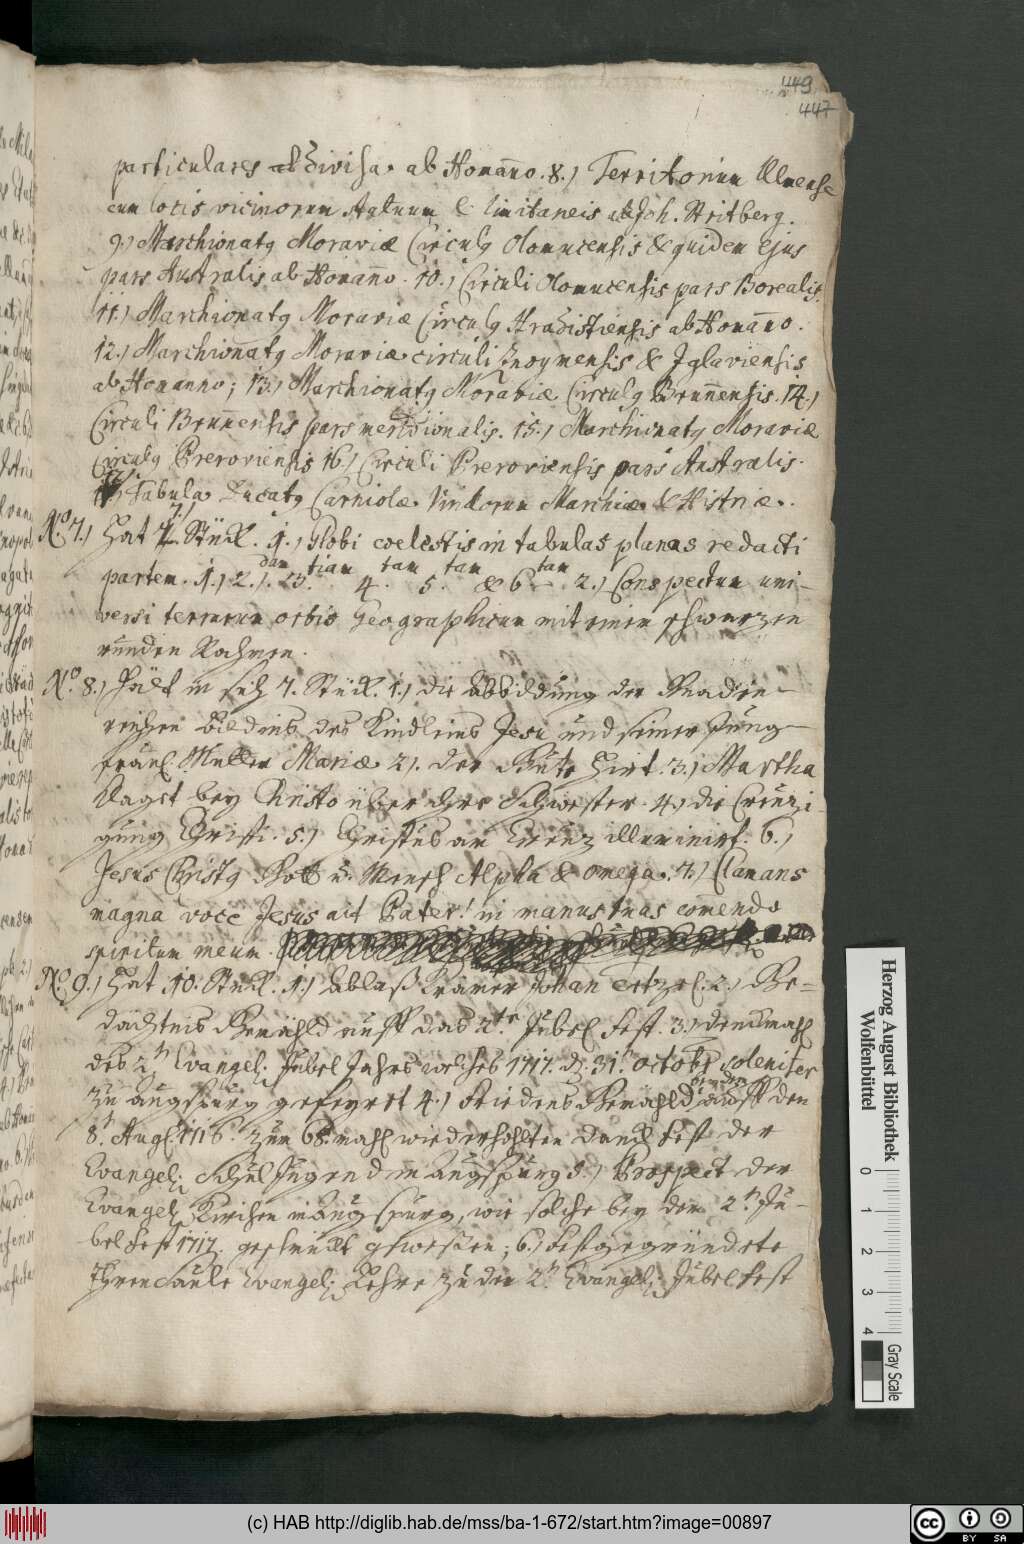 449
447
particulares divisa. ab Homan̄o. 8.) Territorium Ulmense
cum locis vicinorum Statuum & limitaneis a Joh. Stritberg.
9.) Marchionatq Moraviæ Circulq Olomucensis & quidem ejus
pars Australis ab Homan̄o. 10.) Circuli Olomucensis pars Borealis.
11.) Marchionatq Moraviæ Circulq Hradistiensis ab Homan̄o.
12.) Marchionatq Moraviæ circuli Znoymensis & Iglaviensis
ab Homanno; 13.) Marchionatq Moraviæ Circulq Brun̄ensis. 14.)
Circuli Brun̄ensis pars meridionalis. 15.) Marchionatq Moraviæ
Circulq Preroviensis 16.) Circuli Preroviensis pars Australis.
17.) Tabula Ducatq Carniolæ Vindorum Marchiæ & Histriæ.
No. 7.) Hat 7. Stück. 1.) Globi coelestis in tabulas planas redacti
partem. 1.) 2.)dam 3.tiam 4.tam 5.tam & 6tam 2.) Conspectum uni-
versi terrarum orbis Geographicum mit einem schwarzen
runden Rahmen.
No. 8.) Hält in sich 7. Stück. 1.) die Abbildung der Gnaden-
reichen Bildnis des Kindleins Jesu und seiner Jung-
fräul. Mutter Mariæ 2). der Gute Hirt. 3.) Martha
klagt bey Christo über ihre Schwester. 4.) die Creuzi-
gung Christi. 5.) Christus am Creuz illuminirt. 6.)
Jesus Christq Gott u. Mensch Alpha & omega. 7.) Clamans
magna voce Jesus ait Pater! in manus tuas com̄endo
spiritum meum.
No. 9.) Hat 10. Stück. 1.) Ablaß Krämer Johan Tetzel. 2.) Ge=
dächtnis Gemähld auff das 2te Jubel Fest. 3.) Denckmahl
des 2n Evangel: Jubel Jahrs welches 1717. d. 31. octobr soleniter
zu Augspurg gefeyret 4.) Friedens Gemähld auff den
8n. Aug. 1716. zum 68. mahl wiederhohlten Danck Fest der
Evangel: Schul Jugend in Augspurg 5.) Prospect der
Evangel: Kirchen in Augspurg, wie solche bey dem 2n. Ju-
bel Fest 1717. geschmückt gewesen; 6.) Fest gegründete
Ehren Säule Evangel: Lehre zu den 2n. Evangel: Jubel Fest
Herzog August Bibliothek
Wolfenbüttel
0 1 2 3 4
Gray Scale
(c) HAB http://diglib.hab.de/mss/ba-1-672/start.htm?image=00897
cc BY SA